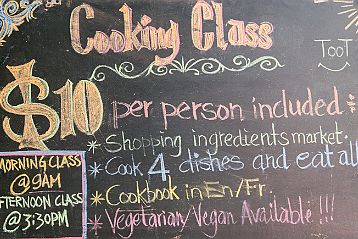 Cooking Class
TOOT
$10 per person included:
* Shopping ingredients market.
* Cook 4 dishes and eat all
* Cookbook in En/Fr.
* Vegetarian/Vegan Available !!!
MORNING CLASS
@ 9AM
AFTERNOON CLASS
@ 3:30PM